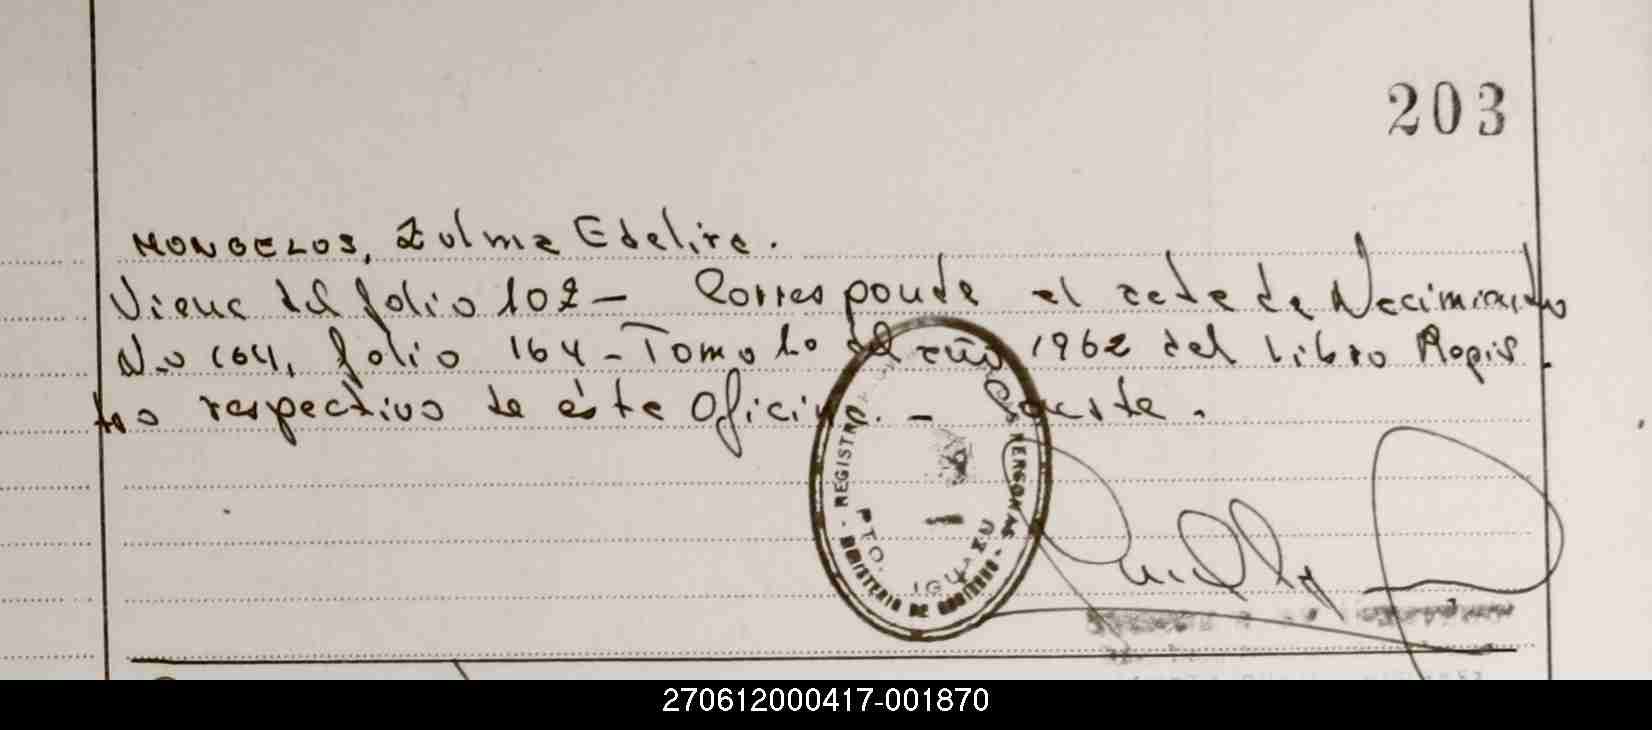 203
MONGELOS, Zulma Edelira.
Viene del folio 102 - Corresponde al acta de Nacimiento
N.o 164, folio 164 - Tomo 1o del año 1962 del Libro Regis
tro respectivo de ésta Oficina. - Conste.
REGISTRO PERSONAS
PTO. IGUAZU
MINISTERIO DE GOBIERNO
270612000417-001870